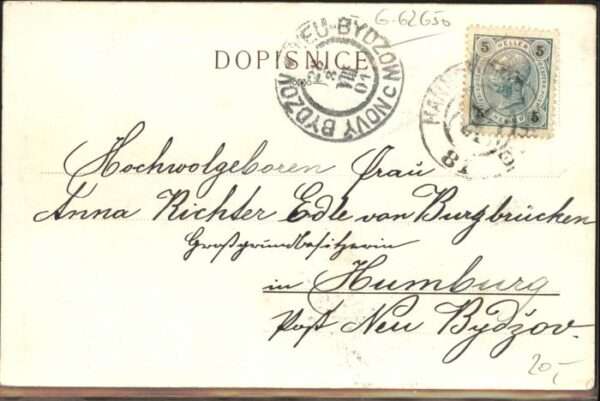 G-62650
DOPISNICE
NEU-BYDZOW
NOVÝ BYDŽOV
5 HELLER 5
5 5
18
Hochwolgeboren Frau
Anna Richter Edle von Burgbrücken
Großgrundbesitzerin
in Humburg
Post Neu Bydžov.
20,-